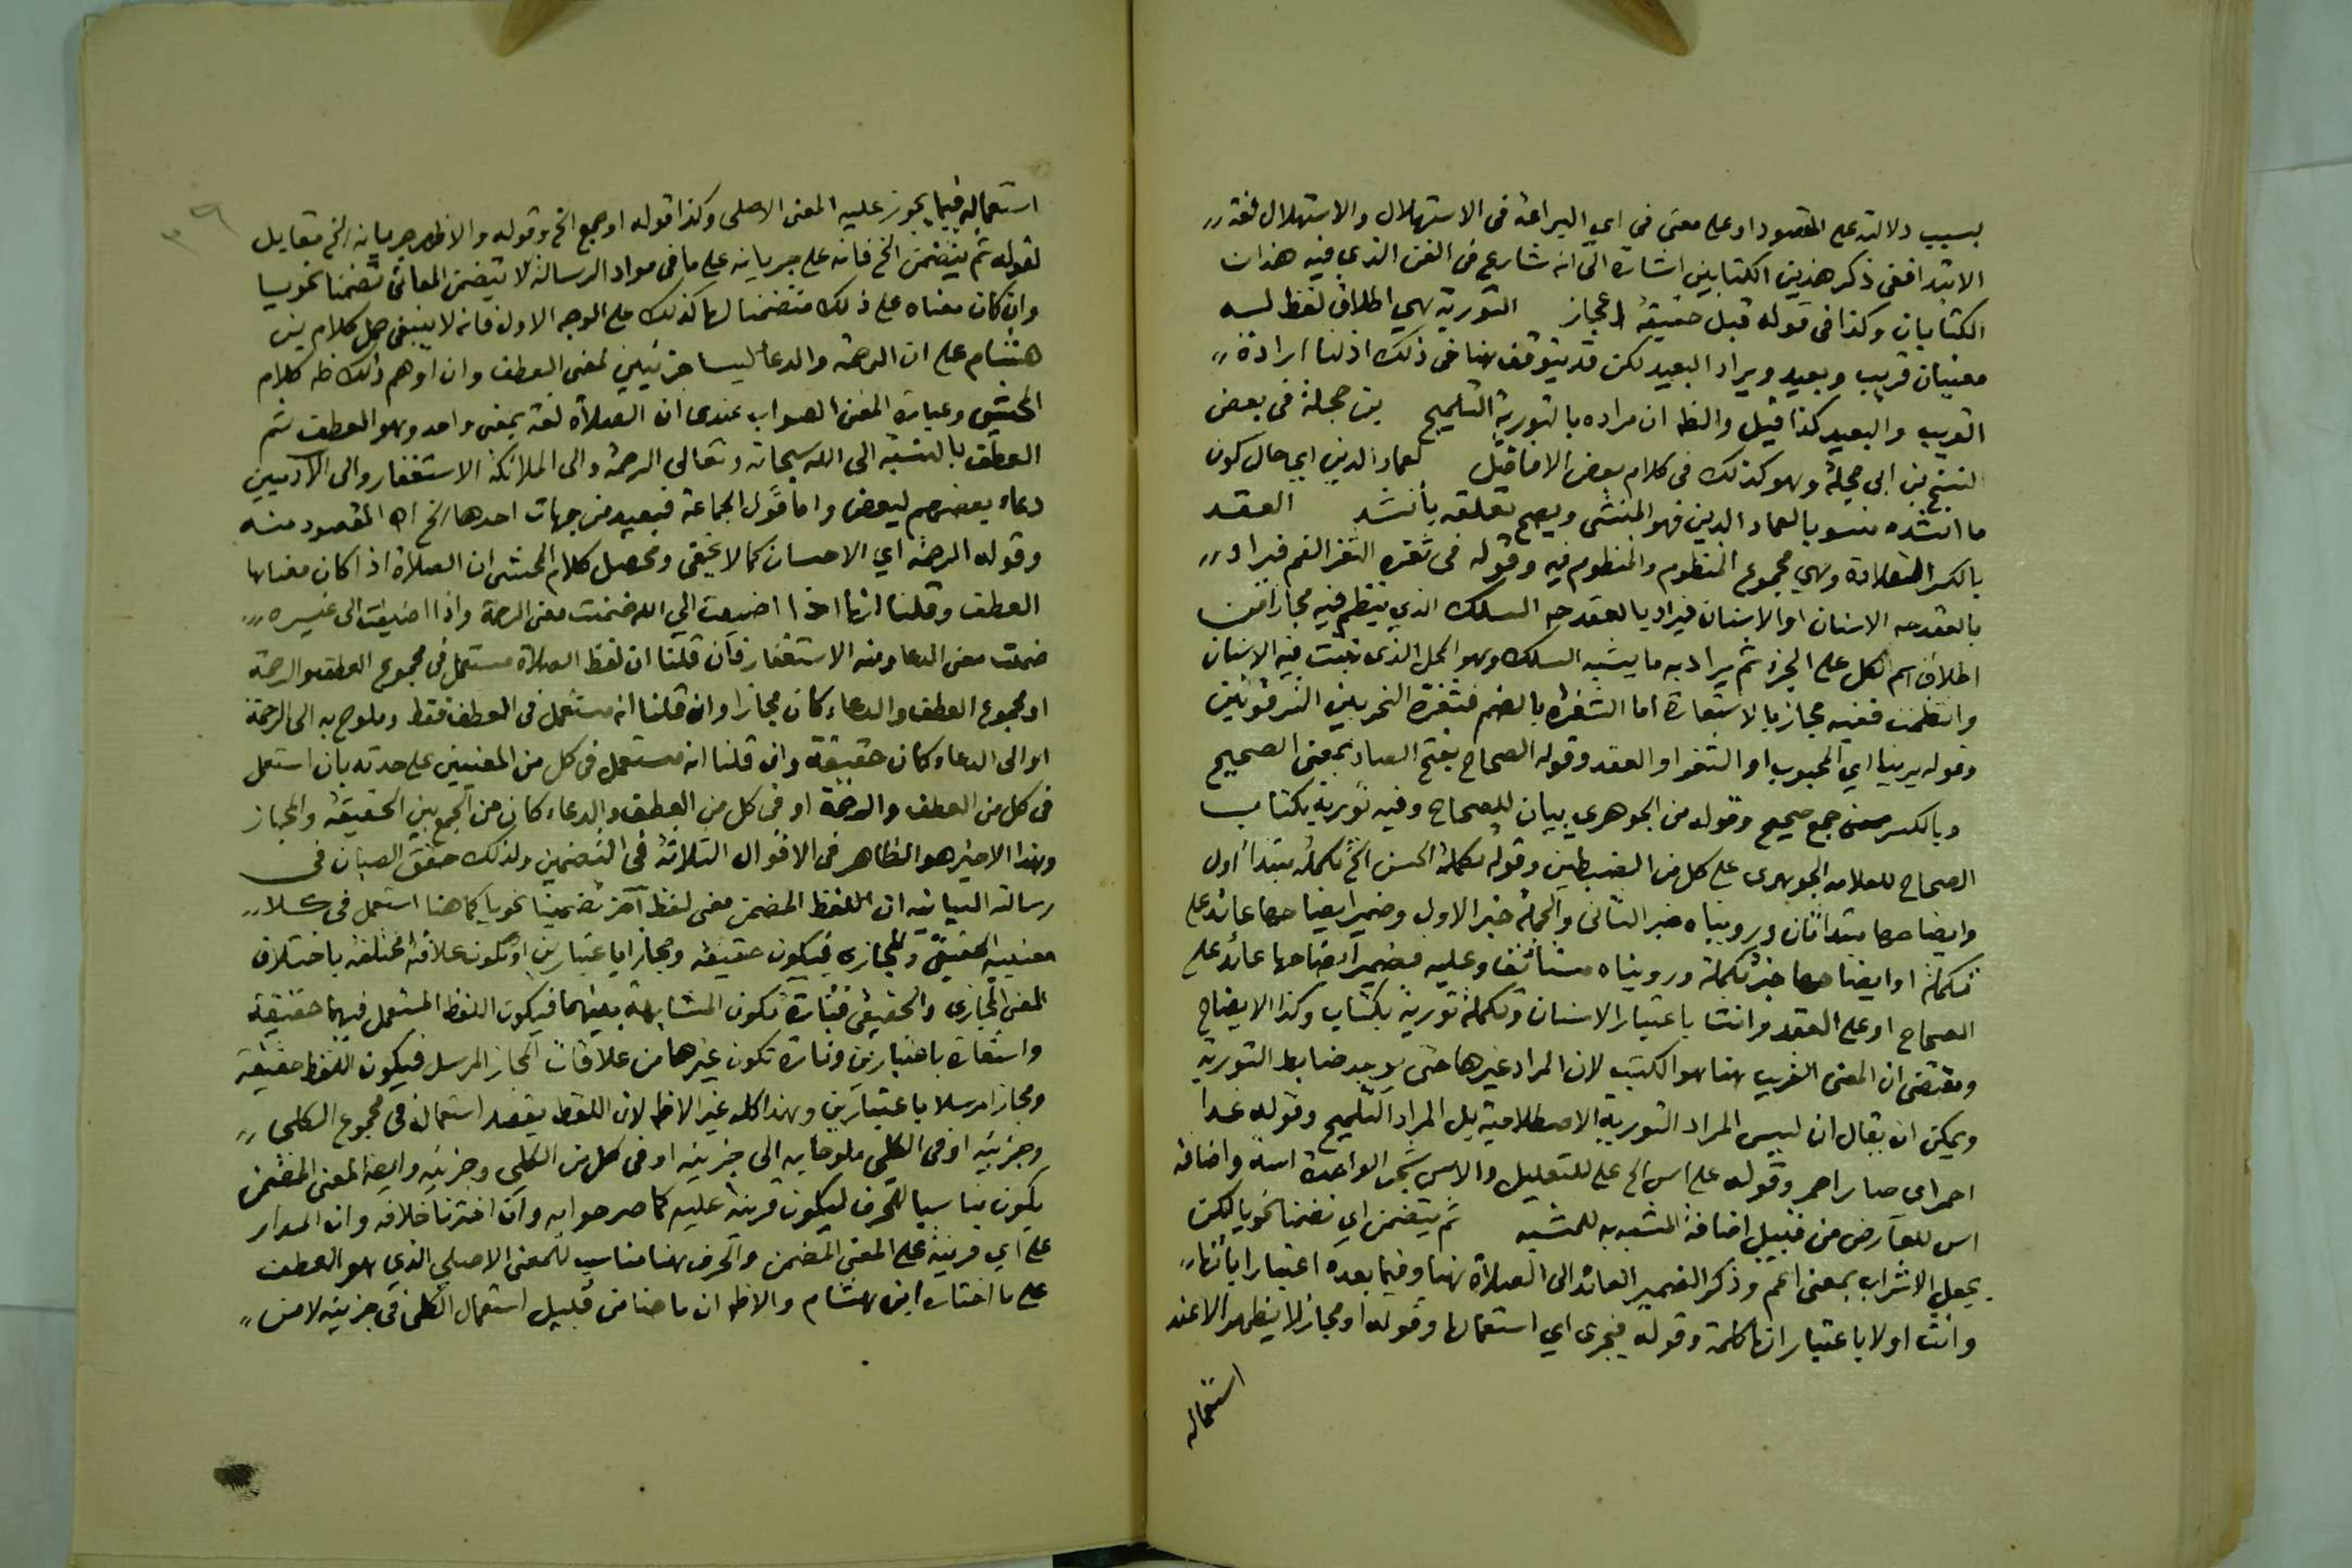 بسبب دلالته على المقصود او على معنى في اي البراعة في الاستهلال والاستهلال لغة
الابتدا ففى ذكر هذين الكتابين اشارة الى انه شارع فى الفن الذي فيه هذان
الكتابان وكذا فى قوله قبل حقيقة اعجاز التورية هي اطلاق لفظ له
معنيان قريب وبعيد ويراد البعيد لكن قد يتوقف هنا فى ذلك اذ لنا ارادة
القريب والبعيد كذا قيل والظ ان مراده بالتورية التلميح بن حجلة فى بعض
النسخ بن ابى حجلة وهو كذلك فى كلام بعض الافاضل لعماد الدين اي حال كون
ما انشده منسوبا لعماد الدين فهو المنشى ويصح تعلقه بأنشد العقد
بالكسر القلادة وهي مجموع المنظوم والمنظوم فيه وقوله فى ثغره الثغر الفم فيراد
بالعقد حه الاسنان او الاسنان فيراد بالعقد حه السلك الذي ينتظم فيه مجازا من
اطلاق اسم الكل على الجزء ثم يراد به ما يشبه السلك وهو المحل الذى تنبت فيه الاسنان
وانتظمت ففيه مجاز بالاستعارة اما الثغرة بالضم فثغرة النحر بين الترقوتين
وقوله يرينا اي المحبوب او الثغر او العقد وقوله الصحاح بفتح الصاد بمعنى الصحيح
وبالكسر جمع صحيح وقوله من الجوهري بيان للصحاح وفيه تورية بكتاب
الصحاح للعلامة الجوهرى على كل من الضبطين وقوله تكملة الحسن الخ تكملة مبتدأ اول
وايضاحها مبتدا ثان ورويناه خبر الثانى والجملة خبر الاول وضمير ايضاحها عائد على
تكملة او ايضاحها خبر تكملة ورويناه مستأنف وعليه فضمير ايضاحها عائد على
الصحاح او على العقد وانث باعتبار الاسنان وتكملة تورية بكتاب وكذا الايضاح
ومقتضى ان المعنى القريب هنا هو الكتب لان المراد غيرها حتى يوجد ضابط التورية
ويمكن ان يقال ان ليس المراد التورية الاصطلاحية بل المراد التلميح وقوله غدا
احمر اى صار احمر وقوله على اس الخ على للتعليل والاس شجر الواحدة اسة واضافة
اس للعارض من قبيل اضافة المشبه به للمشبه ثم يتضمن اي تضمنا نحويا لكن
بجعل الاشراب بمعنى اعم وذكر الضمير العائد الى الصلاة هنا وفيما بعده اعتبارا بانها
وانث اولا باعتبار انها كلمة وقوله فيجرى اي استعمالها وقوله او مجاز لا يظهر الا عند
استعماله
استعماله فيما يجوز عليه المعنى الاصلى وكذا قوله او جمع الخ وقوله والاظهر جريانه الخ مقابل
لقوله ثم يتضمن الخ فانه على جريانه على ما فى مواد الرسالة لا يتضمن المعانى تضمنا نحويا
وان كان معناه على ذلك متضمنا لها كذلك على الوجه الاول فانه لا ينبغى حمل كلام بن
هشام على ان الرحمة والدعا ليسا جزئيين لمعنى العطف وان اوهم ذلك ظ كلام
المحشى وعبارة المغنى الصواب عندى ان الصلاة لغة بمعنى واحد وهو العطف ثم
العطف بالنسبة الى الله سبحانه وتعالى الرحمة والى الملائكة الاستغفار والى الآدميين
دعاء بعضهم لبعض واما قول الجماعة فبعيد من جهات احدها الخ اه المقصود منه
وقوله الرحمة اي الاحسان كما لا يخفى ومحصل كلام المحشى ان الصلاة اذا كان معناها
العطف وقلنا انها اذا اضيفت الى الله ضمنت معنى الرحمة واذا اضيفت الى غيره
ضمنت معنى الدعا ومنه الاستغفار فان قلنا ان لفظ الصلاة مستعمل فى مجموع العطف والرحمة
او مجموع العطف والدعاء كان مجازا وان قلنا انه مستعمل فى العطف فقط وملوح به الى الرحمة
او الى الدعاء كان حقيقة وان قلنا انه مستعمل فى كل من المعنيين على حدته بان استعمل
فى كل من العطف والرحمة او فى كل من العطف والدعاء كان من الجمع بين الحقيقة والمجاز
وهذا الاخير هو الظاهر فى الاقوال الثلاثة فى التضمين ولذلك حقق الصبان فى
رسالته البيانية ان اللفظ المضمن معنى لفظ آخر تضمينا نحويا كما هنا استعمل فى كلا
معنييه الحقيقى والمجازى فيكون حقيقة ومجازا باعتبارين او تكون علاقته مختلفة باختلاف
المعنى المجازى والحقيقى فتارة تكون المشابهة بينهما فيكون اللفظ المستعمل فيهما حقيقة
واستعارة باعتبارين وتارة تكون غيرها من علاقات المجاز المرسل فيكون اللفظ حقيقة
ومجازا مرسلا باعتبارين وهذا كله غير الاظ لان اللفظ يقصد استعماله فى مجموع الكلى
وجزئيه او فى الكلى ملوحا به الى جزئيه او فى كل من الكلى وجزئيه وايضا المعنى المضمن
يكون مناسبا للحرف ليكون قرينة عليه كما صرحوا به وان اخترنا خلافه وان المدار
على اي قرينة على المعنى المضمن والحرف هنا مناسب للمعنى الاصلى الذي هو العطف
على ما اختاره ابن هشام والاظ ان ما هنا من قبيل استعمال الكلى فى جزئيه لا من